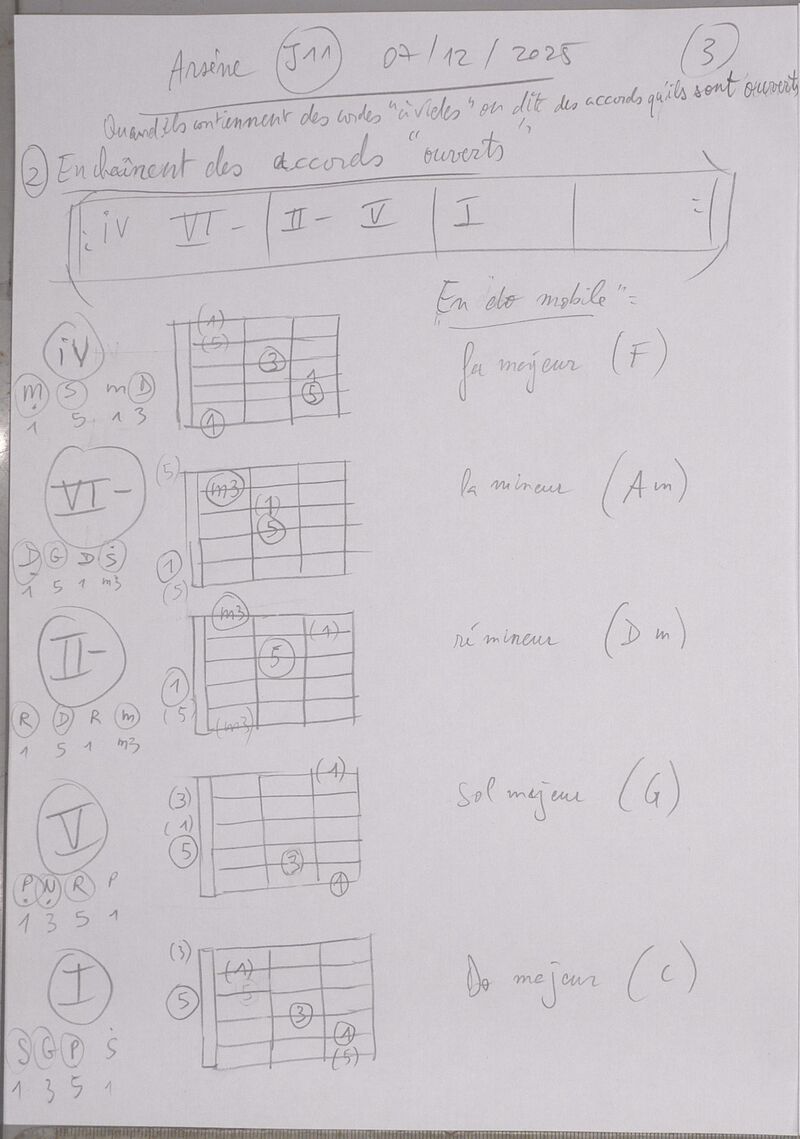 Arsène J11 07/12/2025 3
Quand ils contiennent des cordes "à vides" on dit des accords qu'ils sont ouverts
2 Enchaînent des accords "ouverts"
iV VI- | II- V | I
En "do mobile" =
(1)
(5)
iV 3 fa majeur (F)
m S m D 1
1 5 1 3 5
1
(5)
VI- m3 la mineur (Am)
(1)
5
D G D Ṡ 1
1 5 1 m3 (5)
m3
II- (1) ré mineur (Dm)
5
1
R D R m (5) (m3)
1 5 1 m3
(1)
(3)
V (1) sol majeur (G)
5 3
P N R P 1
1 3 5 1
(3)
I (1) Do majeur (C)
5 5
3
1
S G P Ṡ (5)
1 3 5 1